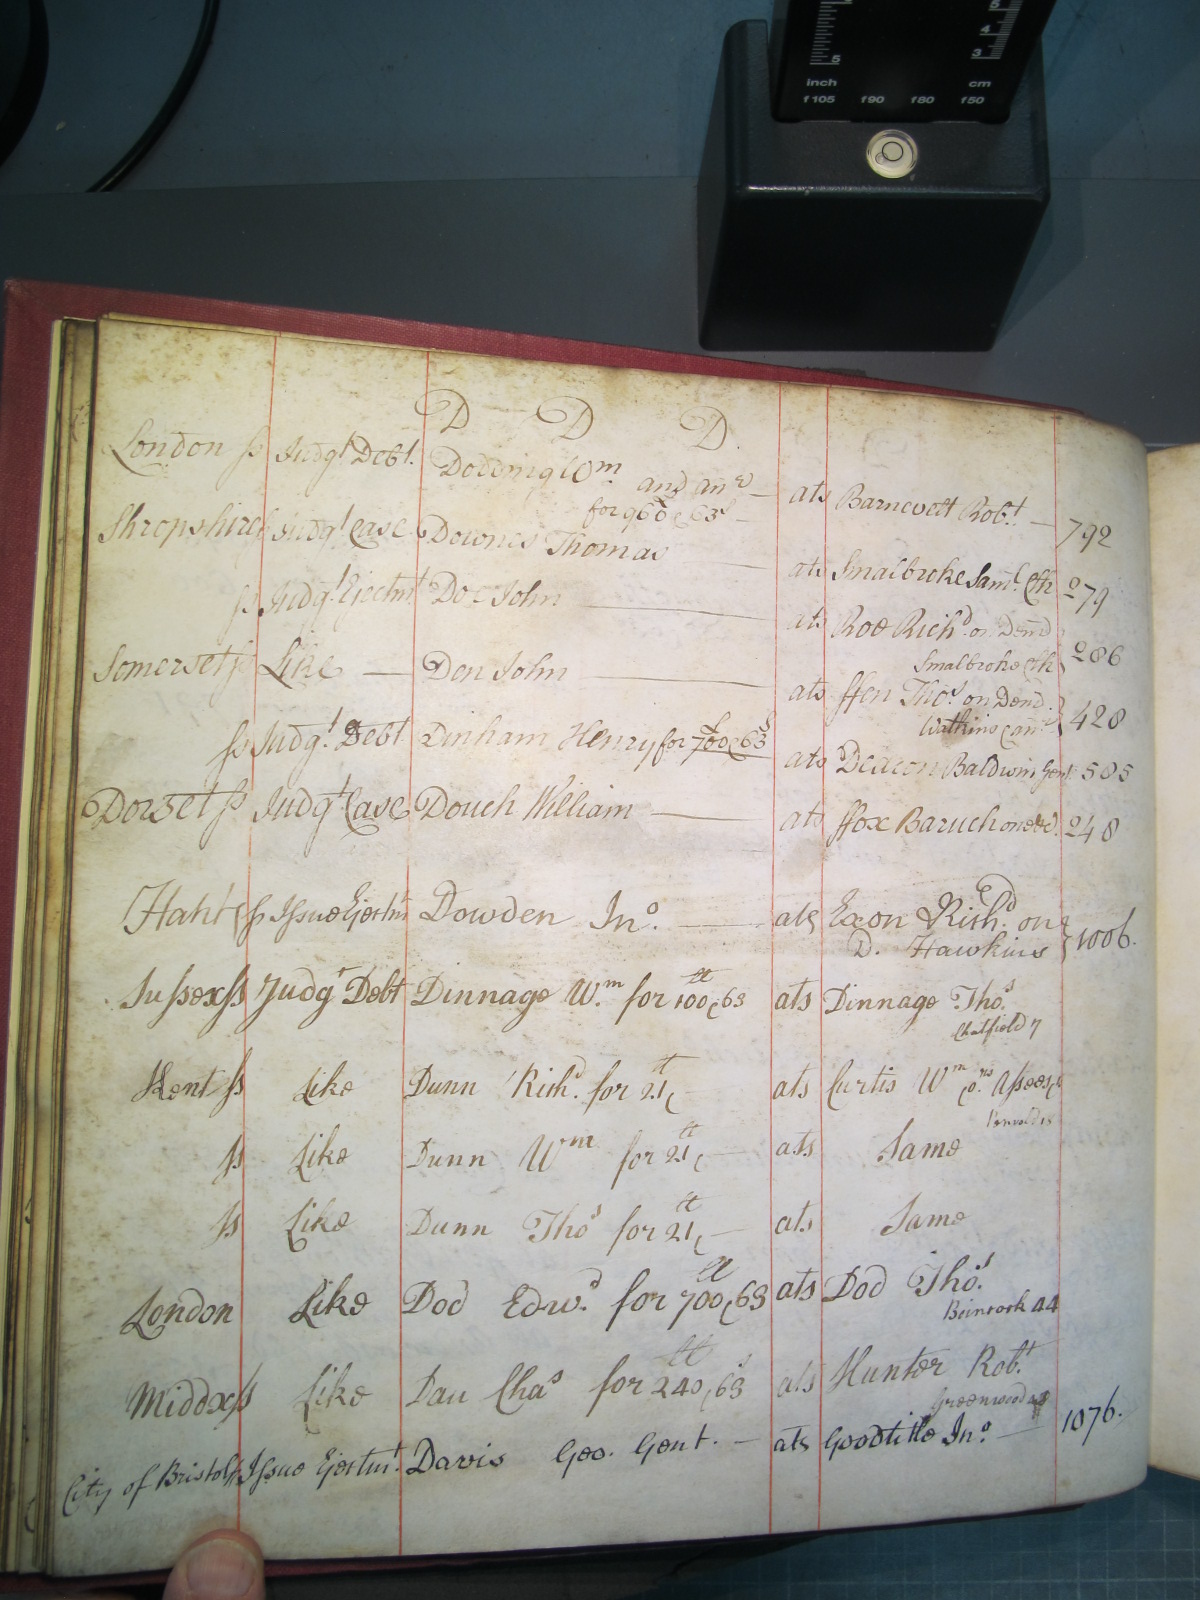 5 5
4
3
inch cm
f105 f90 f80 f50
D D D.
London ss Judgt Debt. Dodding Wm and anr ats Barnevelt Robt 792
for 960£ 63s
Shropshire Judgt Case Downes Thomas ats Smalbroke Saml Clk 279
ss Judgt Ejectmt Doe John ats Roe Richd on Demd 286
Smalbroke Clk
Somerset ss Like Den John ats ffen Thos on Demd. 428
Watkins
ss Judgt. Debt Dinham Henry for 700£ 63s ats Deacon Baldwin Gent 585
Dorset ss Judgt Case Douch William ats ffox Baruch one &c. 248
Hants ss Issue Ejectmt Dowden Jno. ats Exon Richd. on 1006.
D. Hawkins
Sussex ss Judgt Debt Dinnage Wm. for 100 63 ats Dinnage Thos
Chatfield 7
Kent ss Like Dunn Richd. for 21 ats Curtis Wm Assees
ss Like Dunn Wm for 21 ats Same
ss Like Dunn Thos for 21 ats Same
London Like Dod Edwd. for 700 63 ats Dod Thos.
44
Middx ss Like Dau Chas for 240 63s ats Hunter Robt
Greenwood
City of Bristol ss Issue Ejectmt. Davis Geo. Gent. ats Goodtitle Jno. 1076.